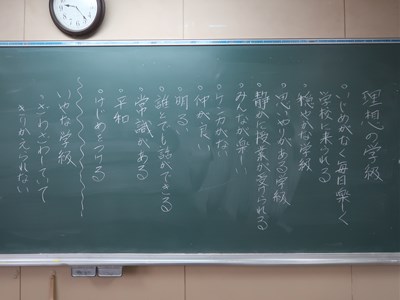 理想の学級
・いじめがなく毎日楽しく
学校に来られる
・穏やかな学級
・思いやりがある学級
・静かに授業が受けられる
・みんなが楽しい
・けんかがない
・仲が良い
・明るい
・誰とでも話ができる
・常識がある
・平和
・けじめをつける
いやな学級
・ざわざわしていて
きりかえられない